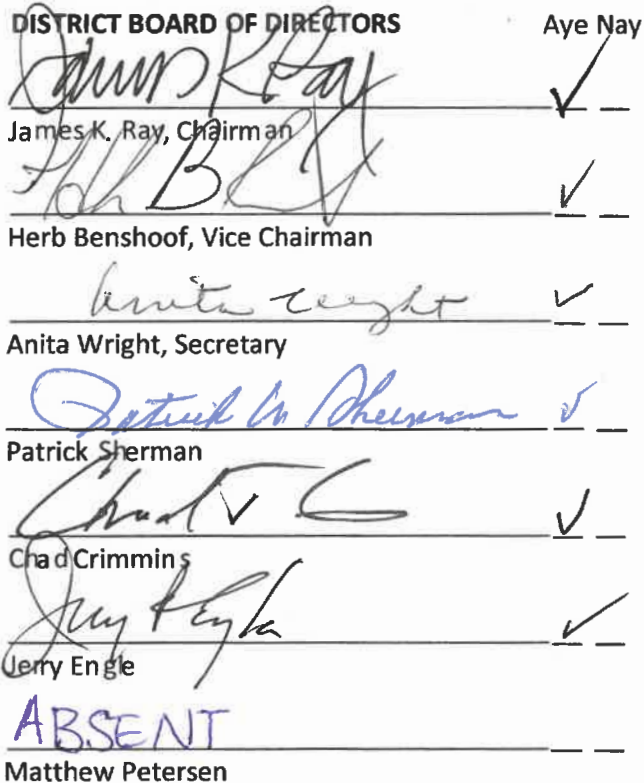 DISTRICT BOARD OF DIRECTORS Aye Nay
James K Ray ✓
James K. Ray, Chairman
✓
Herb Benshoof, Vice Chairman
Anita Wright ✓
Anita Wright, Secretary
Patrick M Sherman ✓
Patrick Sherman
Chad ✓
Chad Crimmins
Jerry Engle ✓
Jerry Engle
ABSENT
Matthew Petersen